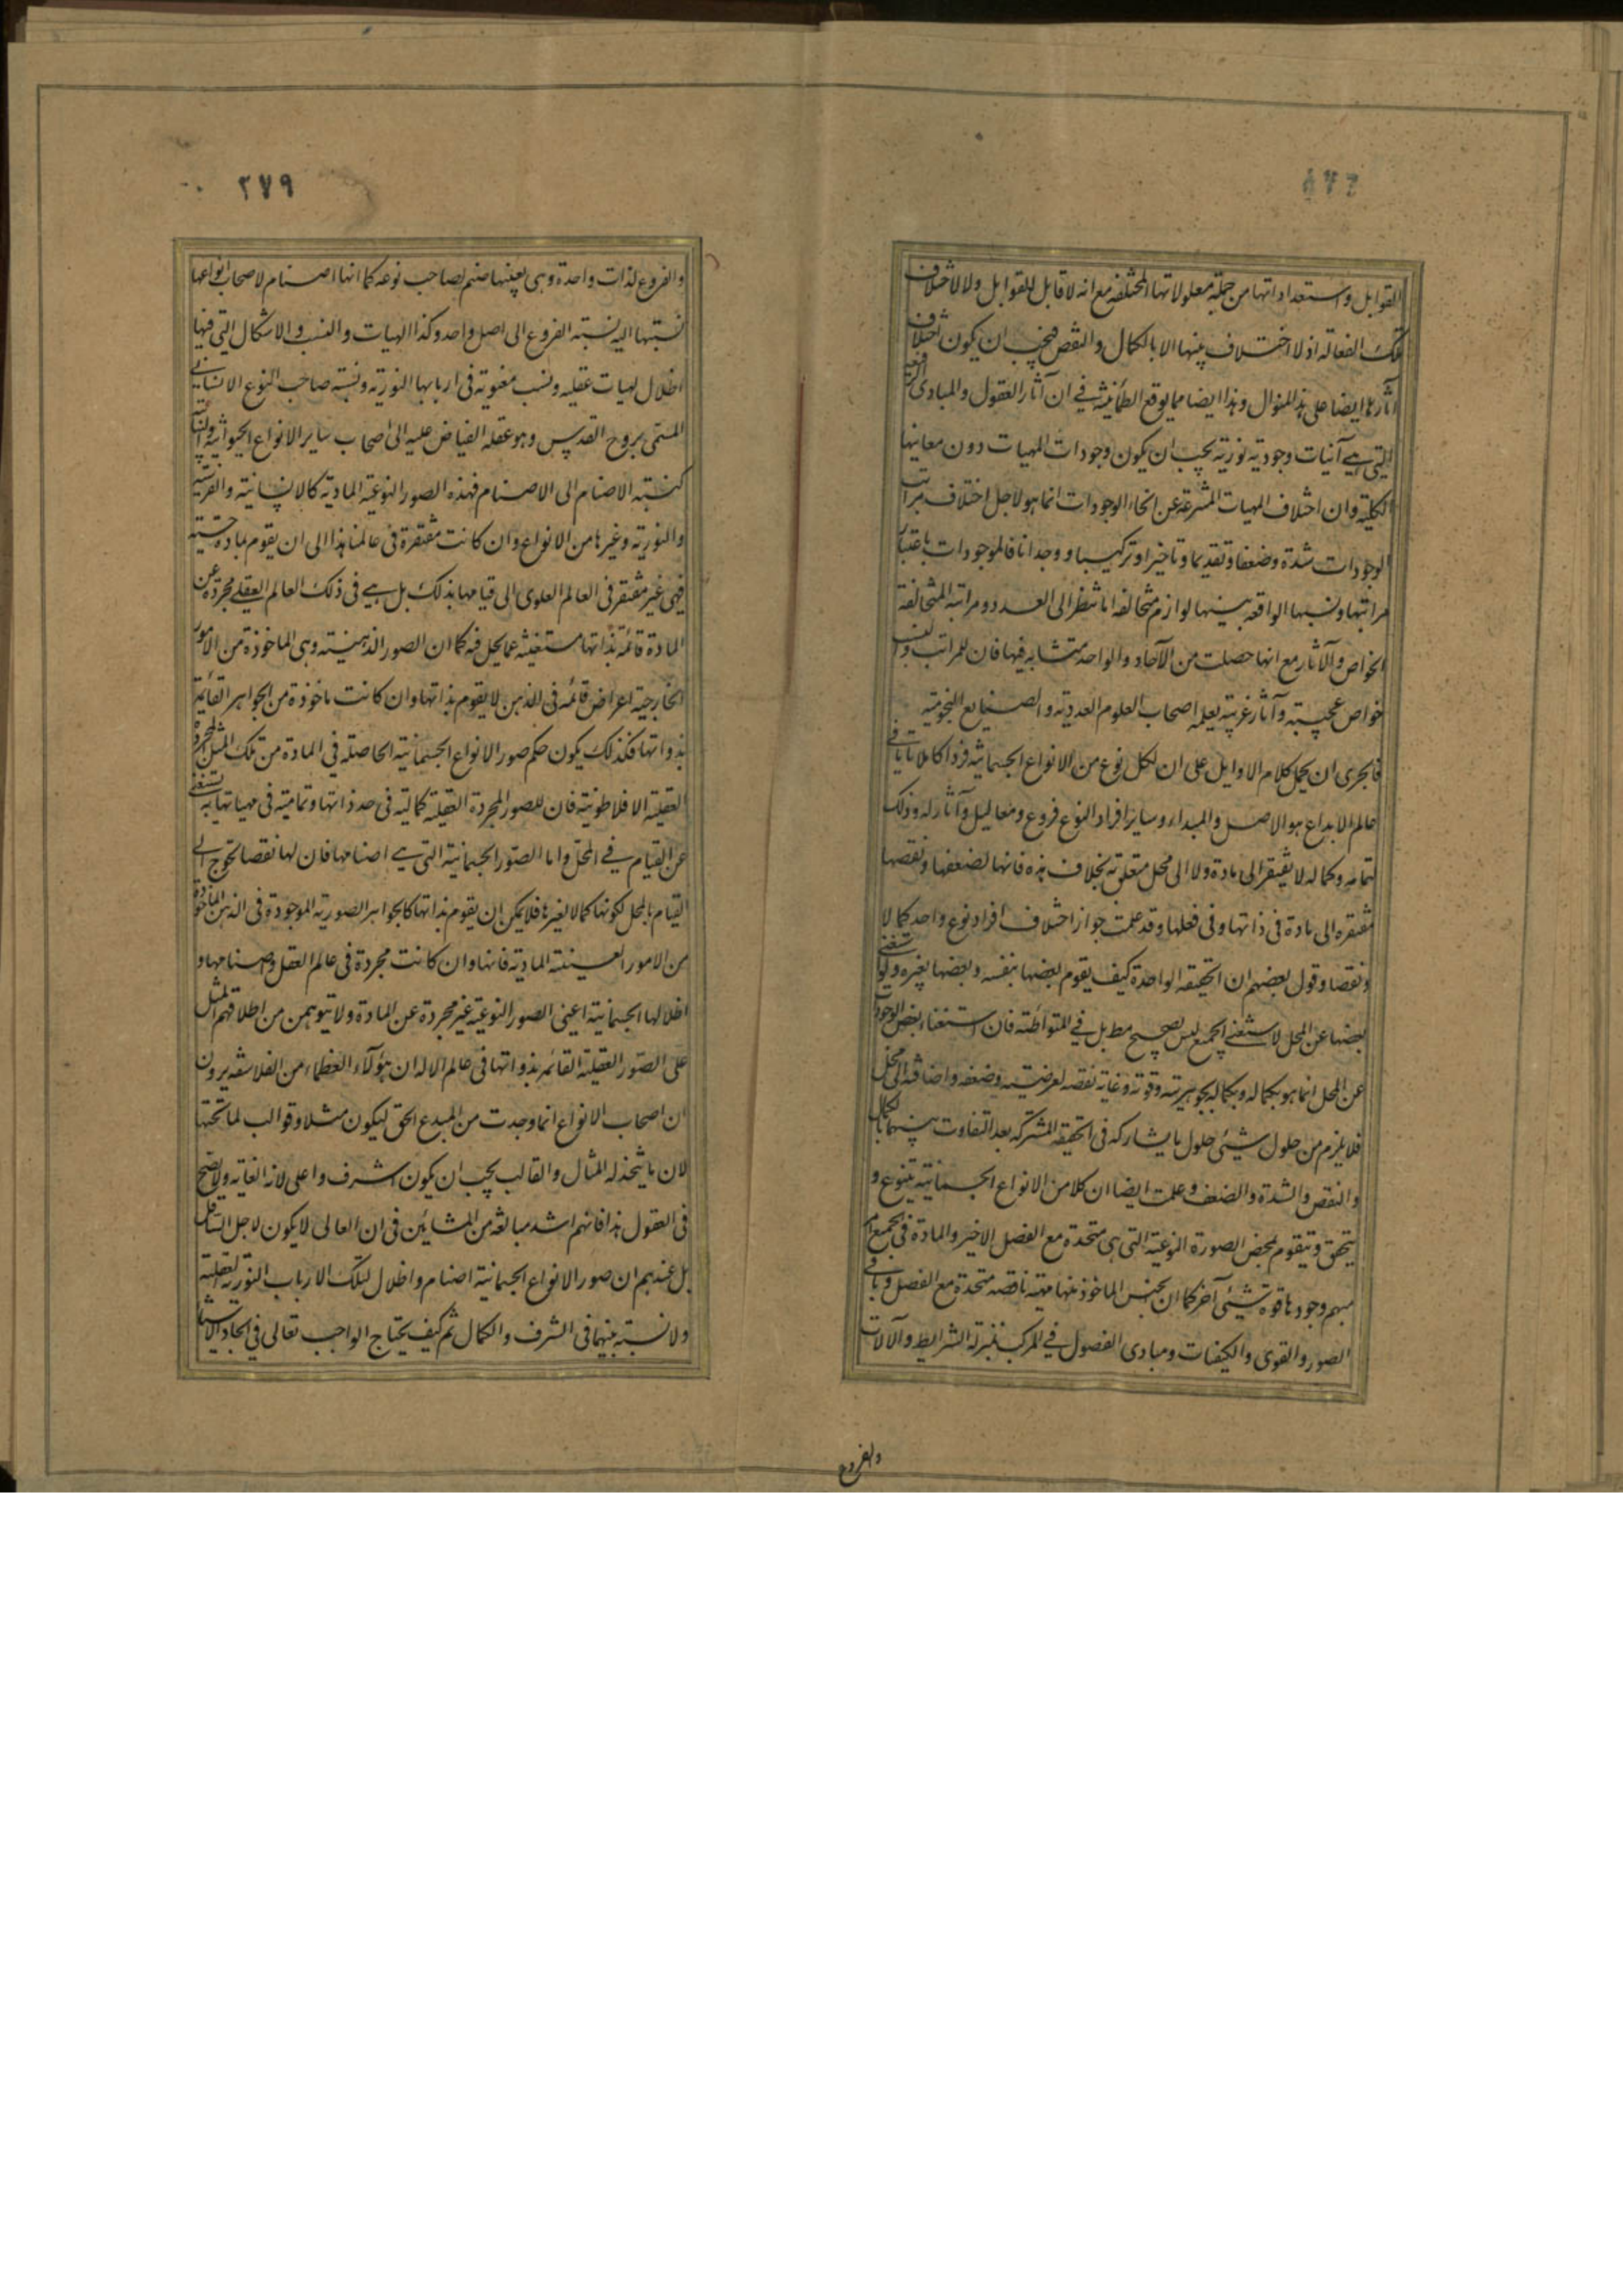 القوابل واستعداداتها من جملة معلولاتها المختلفة مع انه لا قابل للقوابل ولا لاختلاف
تلك الفعالة اذ لا اختلاف بينها الا بالكمال والنقص فيجب ان يكون اختلاف
آثارها ايضا على هذا المنوال وهذا ايضا مما يوقع الطمأنينة في ان آثار العقول والمبادى الرفيعة
التي هي آنيات وجودية نورية يجب ان يكون وجودات المهيات دون معانيها
الكلية وان اختلاف المهيات المنتزعة عن انحاء الوجودات انما هو لاجل اختلاف مراتب
الوجودات شدة وضعفا وتقديما وتاخيرا وتركيبا ووحدانا فالموجودات باعتبار
مراتبها ونسبها الواقعة بينها لوازم متخالفة اما تنظر الى العدد ومراتبه المتخالفة
الخواص والآثار مع انها حصلت من الآحاد والواحد متشابه فيها فان للمراتب والنسب
خواص عجيبة وآثار غريبة يعلمه اصحاب العلوم العددية والصنايع النجومية
فالحرى ان يحمل كلام الاوايل على ان لكل نوع من الانواع الجسمانية فردا كاملا تاما فى
عالم الابداع هو الاصل والمبداء وساير افراد النوع فروع ومعاليل وآثار له وذلك
لتمامه وكماله لا يفتقر الى مادة ولا الى محل متعلق به بخلاف هذه فانها لضعفها ونقصها
مفتقره الى مادة فى ذاتها وفى فعلها وقد علمت جواز اختلاف افراد نوع واحد كمالا
ونقصا وقول بعضهم ان الحقيقة الواحدة كيف يقوم بعضها بنفسه وبعضها بغيره ولو استغنى
بعضها عن المحل لاستغنى الجميع ليس بصحيح مط بل في المتواطئة فان استغناء بعض الوجودات
عن المحل انما هو بكماله وبكماله بجوهريته وقوته وغاية نقصه لعرضيته وضعفه واضافته الى محل
فلا يلزم من حلول شيئى حلول ما يشاركه فى الحقيقة المشتركه بعد التفاوت بينهما بالكمال
والنقص والشدة والضعف وعلمت ايضا ان كلا من الانواع الجسمانية يتنوع و
يتحقق ويتقوم بمحض الصورة النوعية التى هى متحدة مع الفصل الاخير والمادة فى الجميع امر
مبهم وجودها قوة شيئى آخر كما ان الجنس الماخوذ منها مهية ناقصة متحدة مع الفصل وباقى
الصور والقوى والكيفيات ومبادى الفصول في المركب بمنزلة الشرايط والآلات
والفروع
٢٧٩
والفروع لذات واحدة وهى بعينها صنم لصاحب نوعه كما انها اصنام لاصحاب انواعها
نسبتها اليه نسبة الفروع الى اصل واحد وكذا الهيات والنسب والاشكال التى فيها
اظلال لهيات عقلية ونسب معنوية فى اربابها النورية ونسبة صاحب النوع الانسانى
المسمى بروح القدس وهو عقله الفياض عليه الى اصحاب ساير الانواع الحيوانية والنباتية
كنسبة الاصنام الى الاصنام فهذه الصور النوعية المادية كالانسانية والفرسية
والثورية وغيرها من الانواع وان كانت مفتقرة فى عالمنا هذا الى ان يقوم بمادة حسية
فهى غير مفتقر فى العالم العلوى الى قيامها بذلك بل هي فى ذلك العالم العقلى مجردة عن
المادة قائمة بذاتها مستغنية عما يحل فيه فكما ان الصور الذهنية وهى الماخوذة من الامور
الخارجية اعراض قائمة فى الذهن لا يقوم بذاتها وان كانت ماخوذة من الجواهر القائمة
بذواتها فكذلك يكون حكم صور الانواع الجسمانية الحاصلة في المادة من تلك المثل المجردة
العقلية الافلاطونية فان للصور المجردة العقلية كمالية فى حد ذاتها وتمامية فى مهياتها به تستغنى
عن القيام في المحل واما الصور الجسمانية التى هي اصنامها فان لها نقصا يحوج الى
القيام بالمحل لكونها كمالا لغيرها فلا يمكن ان يقوم بذاتها كالجواهر الصورية الموجودة فى الذهن الماخوذة
من الامور العينية المادية فانها وان كانت مجردة فى عالم العقل واصنامها و
اظلالها الجسمانية اعنى الصور النوعية غير مجردة عن المادة ولا يتوهمن من اطلاقهم المثل
على الصور العقلية القائمة بذواتها فى عالم الاله ان هؤلاء العظماء من الفلاسفه يرون
ان اصحاب الانواع انما وجدت من المبدع الحق ليكون مثلا وقوالب لما تحتها
لان ما يتخذ له المثال والقالب يجب ان يكون اشرف واعلى لانه الغاية ولا يصح
فى العقول هذا فانهم اشد مبالغة من المشائين فى ان العالى لا يكون لاجل السافل
بل عندهم ان صور الانواع الجسمانية اصنام واظلال لتلك الارباب النورية العقلية
ولا نسبة بينهما فى الشرف والكمال ثم كيف يحتاج الواجب تعالى في ايجاد الاشياء